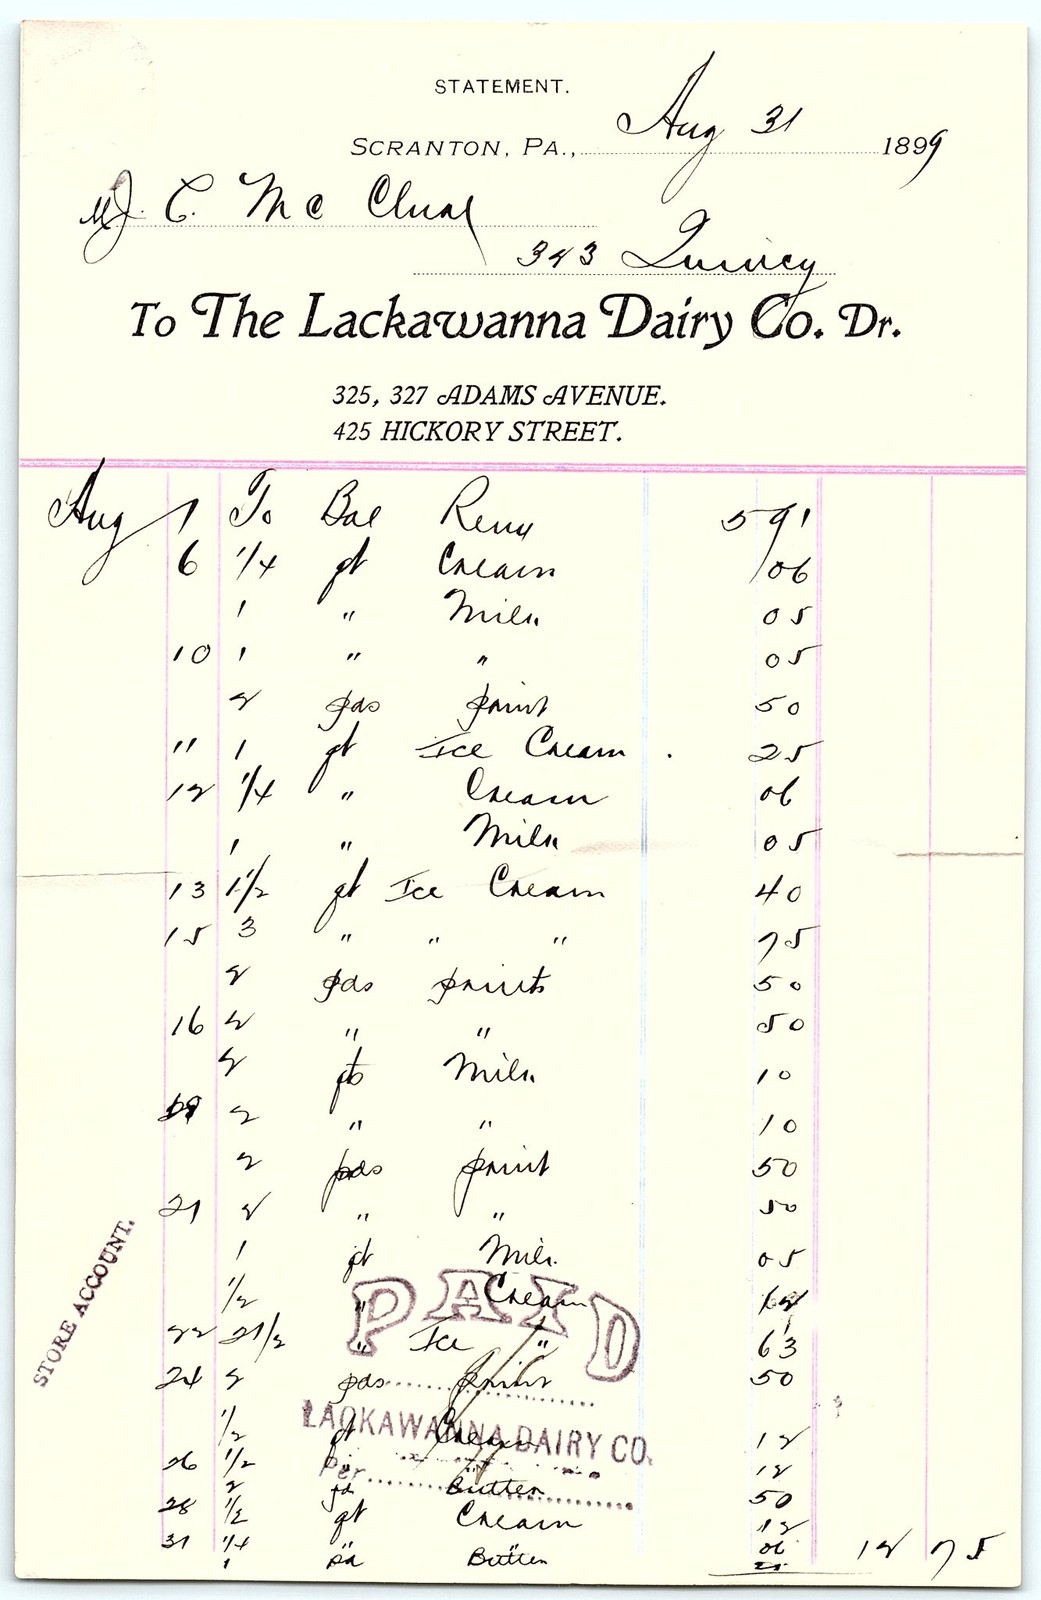 STATEMENT.
SCRANTON, PA., Aug 31 1899
M J. C. Mc Clure
343 Quincy
To The Lackawanna Dairy Co. Dr.
325, 327 ADAMS AVENUE.
425 HICKORY STREET.
Aug 1 To Bal 5 91
6 1/4 qt Cream 06
1 " Milk 05
10 1 " " 05
2 print 50
11 1 qt Ice Cream . 25
12 1/4 " Cream 06
1 " Milk 05
13 1 1/2 qt Ice Cream 40
15 3 " " " 75
2 prints 50
16 2 " " 50
2 qts Milk 10
2 " " 10
2 print 50
21 2 " " 50
1 qt Milk 05
1/2 " Cream 12
22 2 1/2 " Ice " 63
24 2 print 50
1/2 qt Cream 12
26 1/2 " " 12
2 Butter 50
28 1/2 qt Cream 12
31 1/4 " " 06
1 Butter 25 12 75
STORE ACCOUNT.
PAID
LACKAWANNA DAIRY CO.
Per